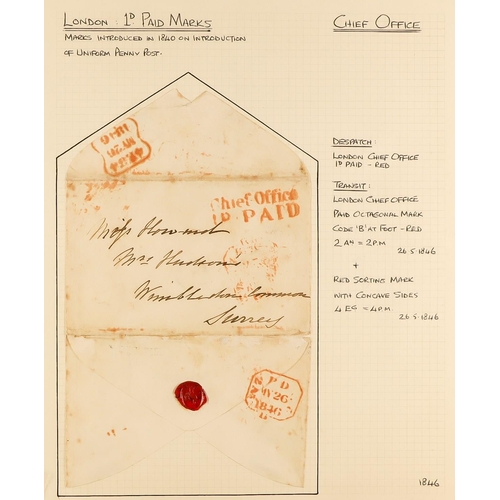 LONDON : 1D PAID MARKS
CHIEF OFFICE
MARKS INTRODUCED IN 1840 ON INTRODUCTION
OF UNIFORM PENNY POST.
Chief Office
1D PAID
Miss
Mrs Hudson
Wimbledon Common
Surrey
PD
MY 26
1846
B
DESPATCH :
LONDON CHIEF OFFICE
1D PAID - RED
TRANSIT :
LONDON CHIEF OFFICE
PAID OCTAGONAL MARK
CODE 'B' AT FOOT - RED
2 AN = 2 P.M.
26.5.1846
+
RED SORTING MARK
WITH CONCAVE SIDES
4 EG = 4 P.M.
26.5.1846
1846